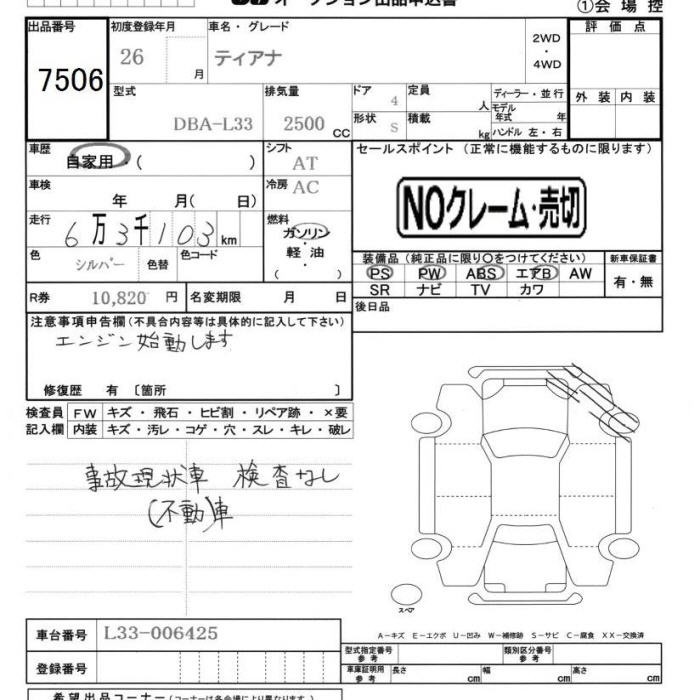 オークション出品申込書
①会 場 控
出品番号
7506
初度登録年月
26 月
車名・グレード
ティアナ
2WD
・
4WD
評 価 点
外 装 内 装
型式
DBA-L33
排気量
2500 CC
ドア
4
形状
S
定員
人
積載
kg
ディーラー・並行
モデル年式 年
ハンドル 左・右
車歴
自家用 ( )
シフト
AT
車検
年 月( 日)
冷房
AC
走行
6万3千103 km
燃料
ガソリン
軽・油
( )
色
シルバー
色替
色コード
R券 10,820 円
名変期限 月 日
セールスポイント (正常に機能するものに限ります)
NOクレーム・売切
装備品 (純正品に限り○をつけてください)
PS PW ABS エアB AW
SR ナビ TV カワ
新車保証書
有・無
後日品
注意事項申告欄(不具合内容等は具体的に記入して下さい)
エンジン始動します
修復歴 有 〔箇所 〕
検査員
記入欄
FW キズ・飛石・ヒビ割・リペア跡・×要
内装 キズ・汚レ・コゲ・穴・スレ・キレ・破レ
事故現状車 検査なし
(不動)車
スペア
A-キズ E-エクボ U-凹み W-補修跡 S-サビ C-腐食 XX-交換済
車台番号 L33-006425
登録番号
型式指定番号
参考
類別区分番号
参考
車庫証明用
参考
長さ cm 幅 cm 高さ cm
希望出品コーナー(コーナーは各会場により異なります)